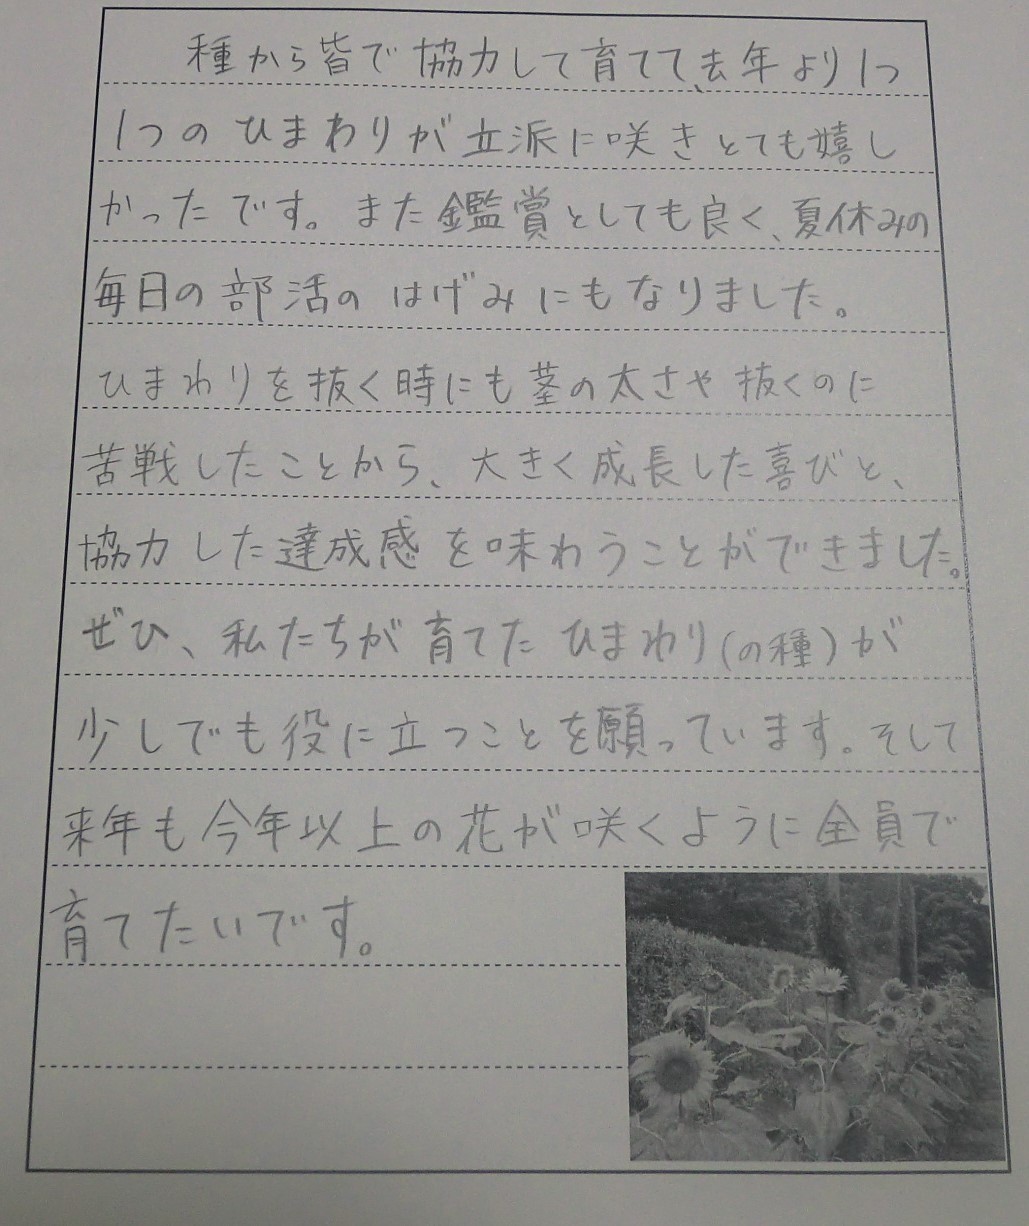 種から皆で協力して育てて、去年より1つ
1つのひまわりが立派に咲きとても嬉し
かったです。また鑑賞としても良く、夏休みの
毎日の部活のはげみにもなりました。
ひまわりを抜く時にも茎の太さや抜くのに
苦戦したことから、大きく成長した喜びと、
協力した達成感を味わうことができました。
ぜひ、私たちが育てたひまわり(の種)が
少しでも役に立つことを願っています。そして
来年も今年以上の花が咲くように全員で
育てたいです。